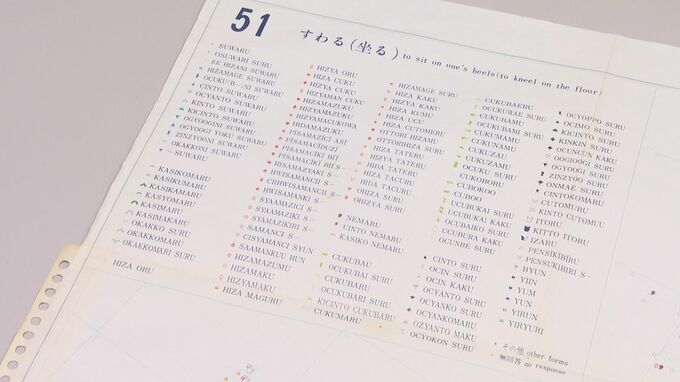 51
すわる(坐る) to sit on one's heels(to kneel on the floor)
SUWARU
OSUWARI SURU
EE HIZANI SUWARU
HIZAMAGE SUWARU
SUWARU
CINTO SUWARU
OCYANTO SUWARU
KINTO SUWARU
KICINTO SUWARU
OGYOOGINI SUWARU
OGYOOGI YOKU SUWARU
ZINZYOONI SUWARU
OKAKKONI SUWARU
—SUWARU
KASIKOMARU
KASIKUMARU
KASIKAMARU
KASYOMARU
KASIMARU
KASIMAKARU
OKAKKO SURU
OKAKKOMARU
OKAKKOMARI SURU
HIZA ORU
HIZYA ORU
HIZA CUKU
HIZYA CUKU
HIZYAMAN CUKU
HIZAMAZUKU
HIZYAMAZUKU
HIZYAMACUKOWA
HIDAMAZUKU
PISAMAZICI ASI
PISAMACIDUZI
PISAMACIKI BII
PISAMACIKI HII S—
HISAMAZYAKI S—
HWISAMANCII S—
CIIHWISAMANCII S—
HWISAMANKI S—
SYAMAZICI S—
SYAMAZIKI S—
SYAMAZIRI S—
SAMANCI S—
CISYAMANCI SYUN
SAMANKUU HUN
HIZAMAZUMU
HIZAMAKU
HIZYAMAKU
HIZA MAGURU
HIZAMAGE SURU
HIZA KAKU
HIZYA KAKU
HIZA KUMU
HIZA UCU
HIZA CUTOMERU
OTTORI HIZAMU
OTTORIHIZA SURU
HIZA TATERU
HIZYA TATERU
HIDA TATERU
HIZA TACURU
HIDA TACURU
OHIZA SURU
OHIZYA SURU
NEMARU
CINTO NEMARU
KASIKO NEMARU
CUKUBAU
OCUKUBAI SURU
CUKUBARU
OCUKUBARI SURU
KICINTO CUKUBARU
CUKUMARU
CUKUBAERU
OCUKUWAE SURU
CUKUBAMU
OCUKUBAMI SURU
CUKURAMU
CUKUNAMU
CUKUZAU
CUKUZAMU
OCUKU SURU
CUKOHORU
CUBOKOO
CUBOO
UCUBUKU
UCUBUKAI KAKU
OCUBAIKO SURU
OCUBURA KAKU
OCUNBE SURU
CINTO SURU
OCIN SURU
OCIN KAKU
OCYANTO SURU
OCYANKO SURU
OCYANKOMARU
OZYANTO MARU
OCYOKON SURU
OCYOPPO SURU
OCIMO SURU
KICINTO SURU
KINKIN SURU
OCUNCUN KAKU
OGYOOGI SURU
OOGIOOGI SURU
ZINZYOO SURU
ONMAE SURU
CINTOKOMARU
CUTOMURU
KINTO CUTOMUU
ITORU
KITTO ITORU
IZARU
PENSIKIBIRI
PENSIKUBIRI S—
BYUN
YIIN
YUM
YUN
YIRUN
YIRYURI
その他 other forms
無回答 no response